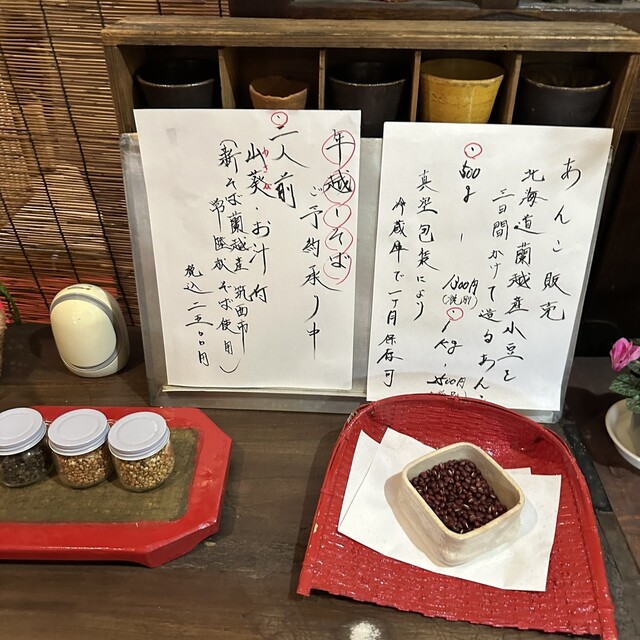 あんこ販売
北海道蘭越産小豆を
三日間かけて造るあん。
500g - 1,300円
(税別)
1kg - 2,500円
真空包装により
冷蔵庫で一ヶ月保存可
年越しそば
ご予約承り中
二人前
山葵・お汁付
わさび
(新そば蘭越産
常陸秋そば使用)
税込二三〇〇円